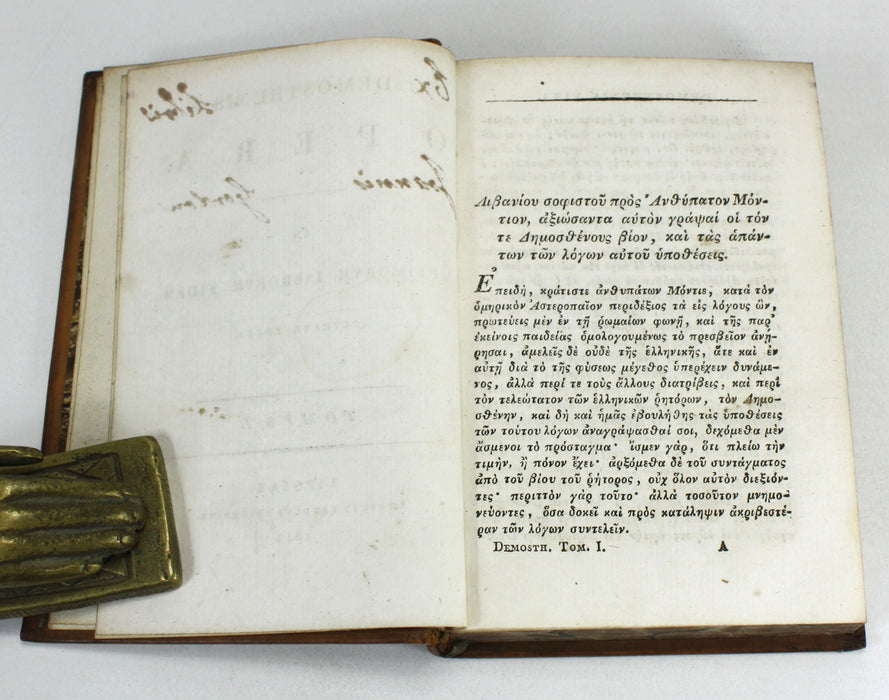 Ex
Libris
Joannis
Gordon
Λιβανίου σοφιστοῦ πρὸς Ἀνθύπατον Μόν-
τιον, ἀξιώσαντα αὐτὸν γράψαί οἱ τόν
τε Δημοσθένους βίον, καὶ τὰς ἁπάν-
των τῶν λόγων αὐτοῦ ὑποθέσεις.
Ἐπειδὴ, κράτιστε ἀνθυπάτων Μόντιε, κατὰ τὸν
ὁμηρικὸν Ἀστεροπαῖον περιδέξιος τὰ εἰς λόγους ὢν,
πρωτεύεις μὲν ἐν τῇ ῥωμαίων φωνῇ, καὶ τῆς παρ᾽
ἐκείνοις παιδείας ὁμολογουμένως τὸ πρεσβεῖον ἀνῄ-
ρησαι, ἀμελεῖς δὲ οὐδὲ τῆς ἑλληνικῆς, ἅτε καὶ ἐν
αὐτῇ διὰ τὸ τῆς φύσεως μέγεθος ὑπερέχειν δυνάμε-
νος, ἀλλὰ περί τε τοὺς ἄλλους διατρίβεις, καὶ περὶ
τὸν τελεώτατον τῶν ἑλληνικῶν ῥητόρων, τὸν Δημο-
σθένην, καὶ δὴ καὶ ἡμᾶς ἐβουλήθης τὰς ὑποθέσεις
τῶν τούτου λόγων ἀναγράψασθαί σοι, δεχόμεθα μὲν
ἄσμενοι τὸ πρόσταγμα· ἴσμεν γὰρ, ὅτι πλείω τὴν
τιμὴν, ἢ πόνον ἔχει· ἀρξόμεθα δὲ τοῦ συντάγματος
ἀπὸ τοῦ βίου τοῦ ῥήτορος, οὐχ ὅλον αὐτὸν διεξιόν-
τες· περιττὸν γὰρ τοῦτο· ἀλλὰ τοσοῦτον μνημο-
νεύοντες, ὅσα δοκεῖ καὶ πρὸς κατάληψιν ἀκριβεστέ-
ραν τῶν λόγων συντελεῖν.
DEMOSTH. TOM. I. A